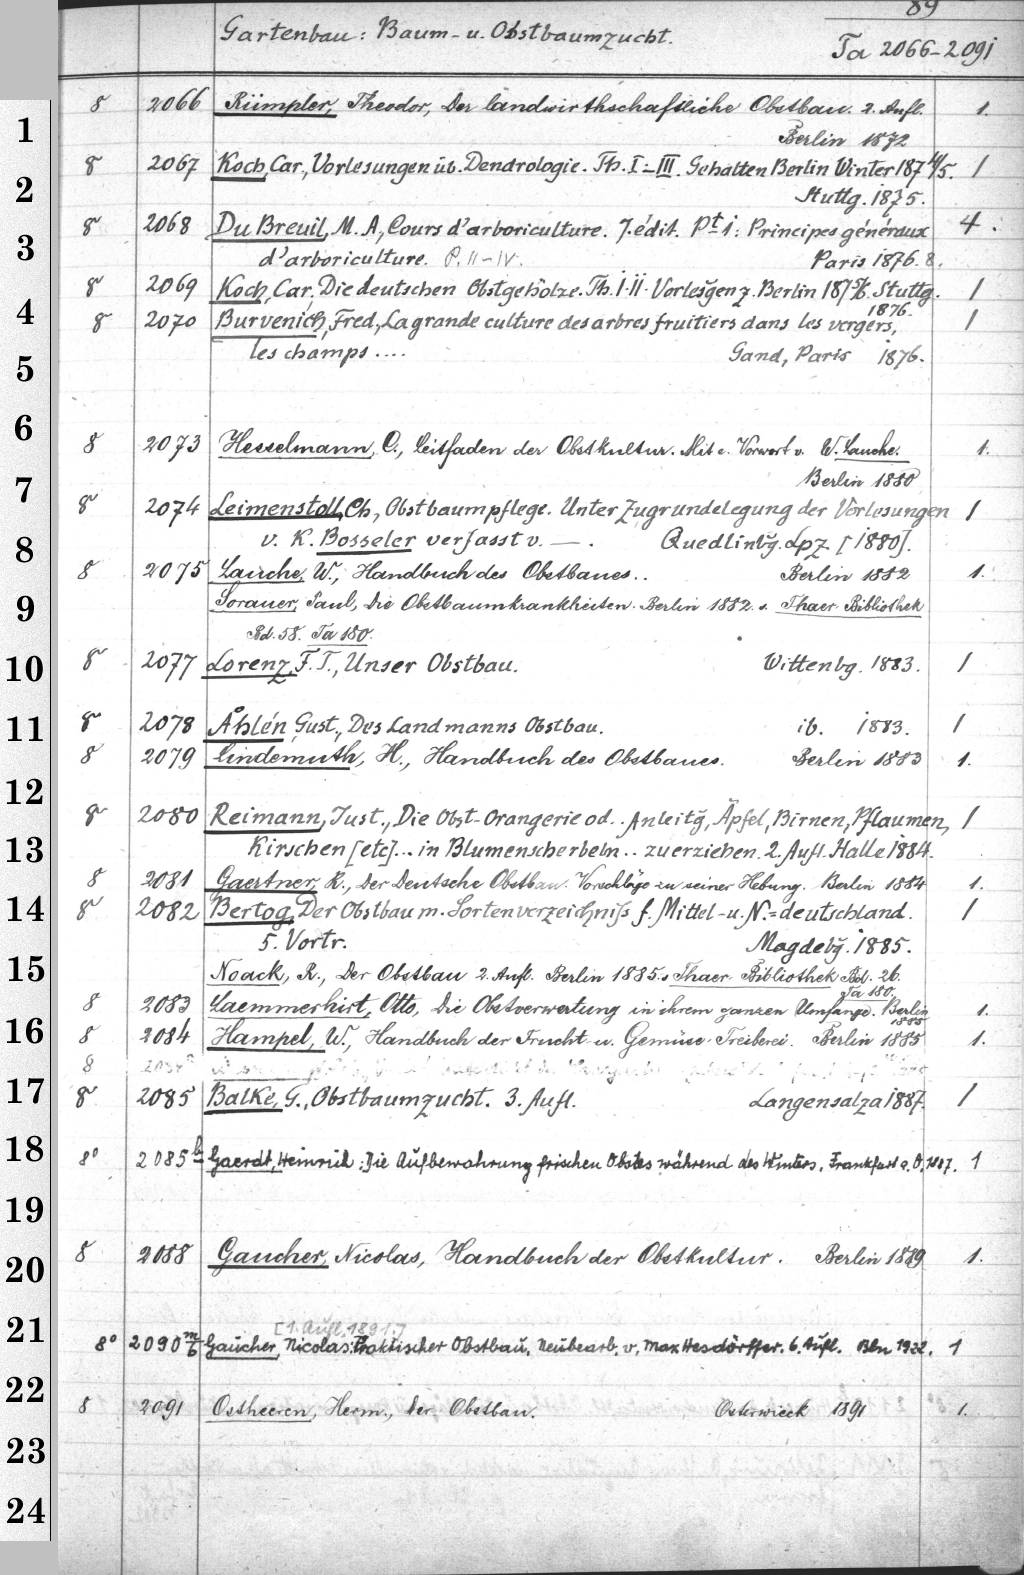 89
Gartenbau: Baum- u. Obstbaumzucht.
Ta 2066-2091
8 2066 Rümpler, Theodor, Der landwirthschaftliche Obstbau. 2. Aufl. 1.
Berlin 1872
1
8 2067 Koch, Car., Vorlesungen üb. Dendrologie. Th. I-III. Gehalten Berlin Winter 1874/5. 1
2
Stuttg. 1875.
8 2068 Du Breuil, M. A., Cours d'arboriculture. 7. édit. Pt 1: Principes généraux 4.
3
d'arboriculture. P. II-IV. Paris 1876. 8.
8 2069 Koch, Car. Die deutschen Obstgehölze. Th. I-II. Vorlesgen z. Berlin 1875/6. Stuttg. 1
1876.
4
8 2070 Burvenich, Fred., La grande culture des arbres fruitiers dans les vergers, 1
les champs .... Gand, Paris 1876.
5
6
8 2073 Hesselmann, O., Leitfaden der Obstkultur. Mit e. Vorwort v. W. Lauche. 1.
Berlin 1880
7
8 2074 Leimenstoll, Ch., Obstbaumpflege. Unter Zugrundelegung der Vorlesungen 1
v. K. Bosseler verfasst v. — . Quedlinbg. Lpz [1880].
8
8 2075 Lauche, W., Handbuch des Obstbaues.. Berlin 1882 1.
9
Sorauer, Paul, Die Obstbaumkrankheiten. Berlin 1882. s. Thaer-Bibliothek
Bd. 58. Ta 180.
10
8 2077 Lorenz, F. T., Unser Obstbau. Wittenbg. 1883. 1
11
8 2078 Åhlén, Gust., Des Landmanns Obstbau. ib. 1883. 1
8 2079 Lindemuth, H., Handbuch des Obstbaues. Berlin 1883 1.
12
8 2080 Reimann, Just., Die Obst-Orangerie od. .. Anleitg, Äpfel, Birnen, Pflaumen, 1
13
Kirschen [etc]... in Blumenscherbeln .. zu erziehen. 2. Aufl. Halle 1884.
8 2081 Gaertner, K., Der Deutsche Obstbau. Vorschläge zu seiner Hebung. Berlin 1884 1.
14
8 2082 Bertog, Der Obstbaum. Sortenverzeichniss f. Mittel- u. N.=deutschland. 1
5. Vortr. Magdebg. 1885.
15
Noack, R., Der Obstbau 2. Aufl. Berlin 1885. s. Thaer-Bibliothek Bd. 26.
Ta 180.
8 2083 Laemmerhirt, Otto, Die Obstverwertung in ihrem ganzen Umfange. Berlin 1.
1885
16
8 2084 Hampel, W., Handbuch der Frucht- u. Gemüse-Treiberei. Berlin 1885 1.
8
17
8 2085 Balke, G., Obstbaumzucht. 3. Aufl. Langensalza 1887. 1
18
8° 2085 b Gaerdt, Heinrich: Die Aufbewahrung frischen Obstes während des Winters. Frankfurt a. O. 1887. 1
19
20
8 2088 Gaucher, Nicolas, Handbuch der Obstkultur. Berlin 1889 1.
21
[1. Aufl. 1891.]
8° 2090 m/6 Gaucher, Nicolas: Praktischer Obstbau, Neubearb. v. Max Hesdörffer. 6. Aufl. Bln 1922. 1
22
8 2091 Ostheeren, Herm., Der Obstbau. Osterwieck 1891 1.
23
24